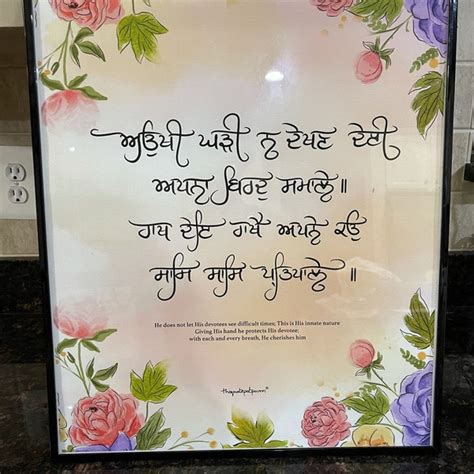 ਅਉਖੀ ਘੜੀ ਨ ਦੇਖਣ ਦੇਈ
ਅਪਨਾ ਬਿਰਦੁ ਸਮਾਲੇ ॥
ਹਾਥ ਦੇਇ ਰਾਖੈ ਅਪਨੇ ਕਉ
ਸਾਸਿ ਸਾਸਿ ਪ੍ਰਤਿਪਾਲੇ ॥
He does not let His devotees see difficult times; This is His innate nature
Giving His hand he protects His devotee;
with each and every breath, He cherishes him